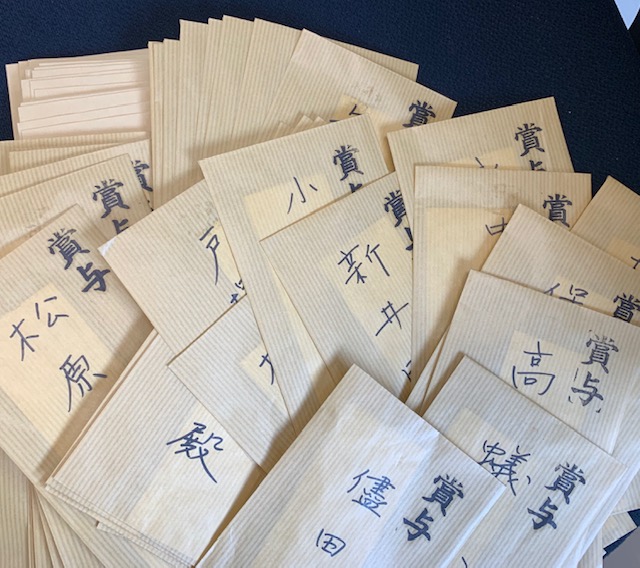 賞与
賞与
賞与
松原
賞与
小
賞与
新井
賞与
賞与
賞与
賞与
高
賞与
蟻
賞与
儘田
殿